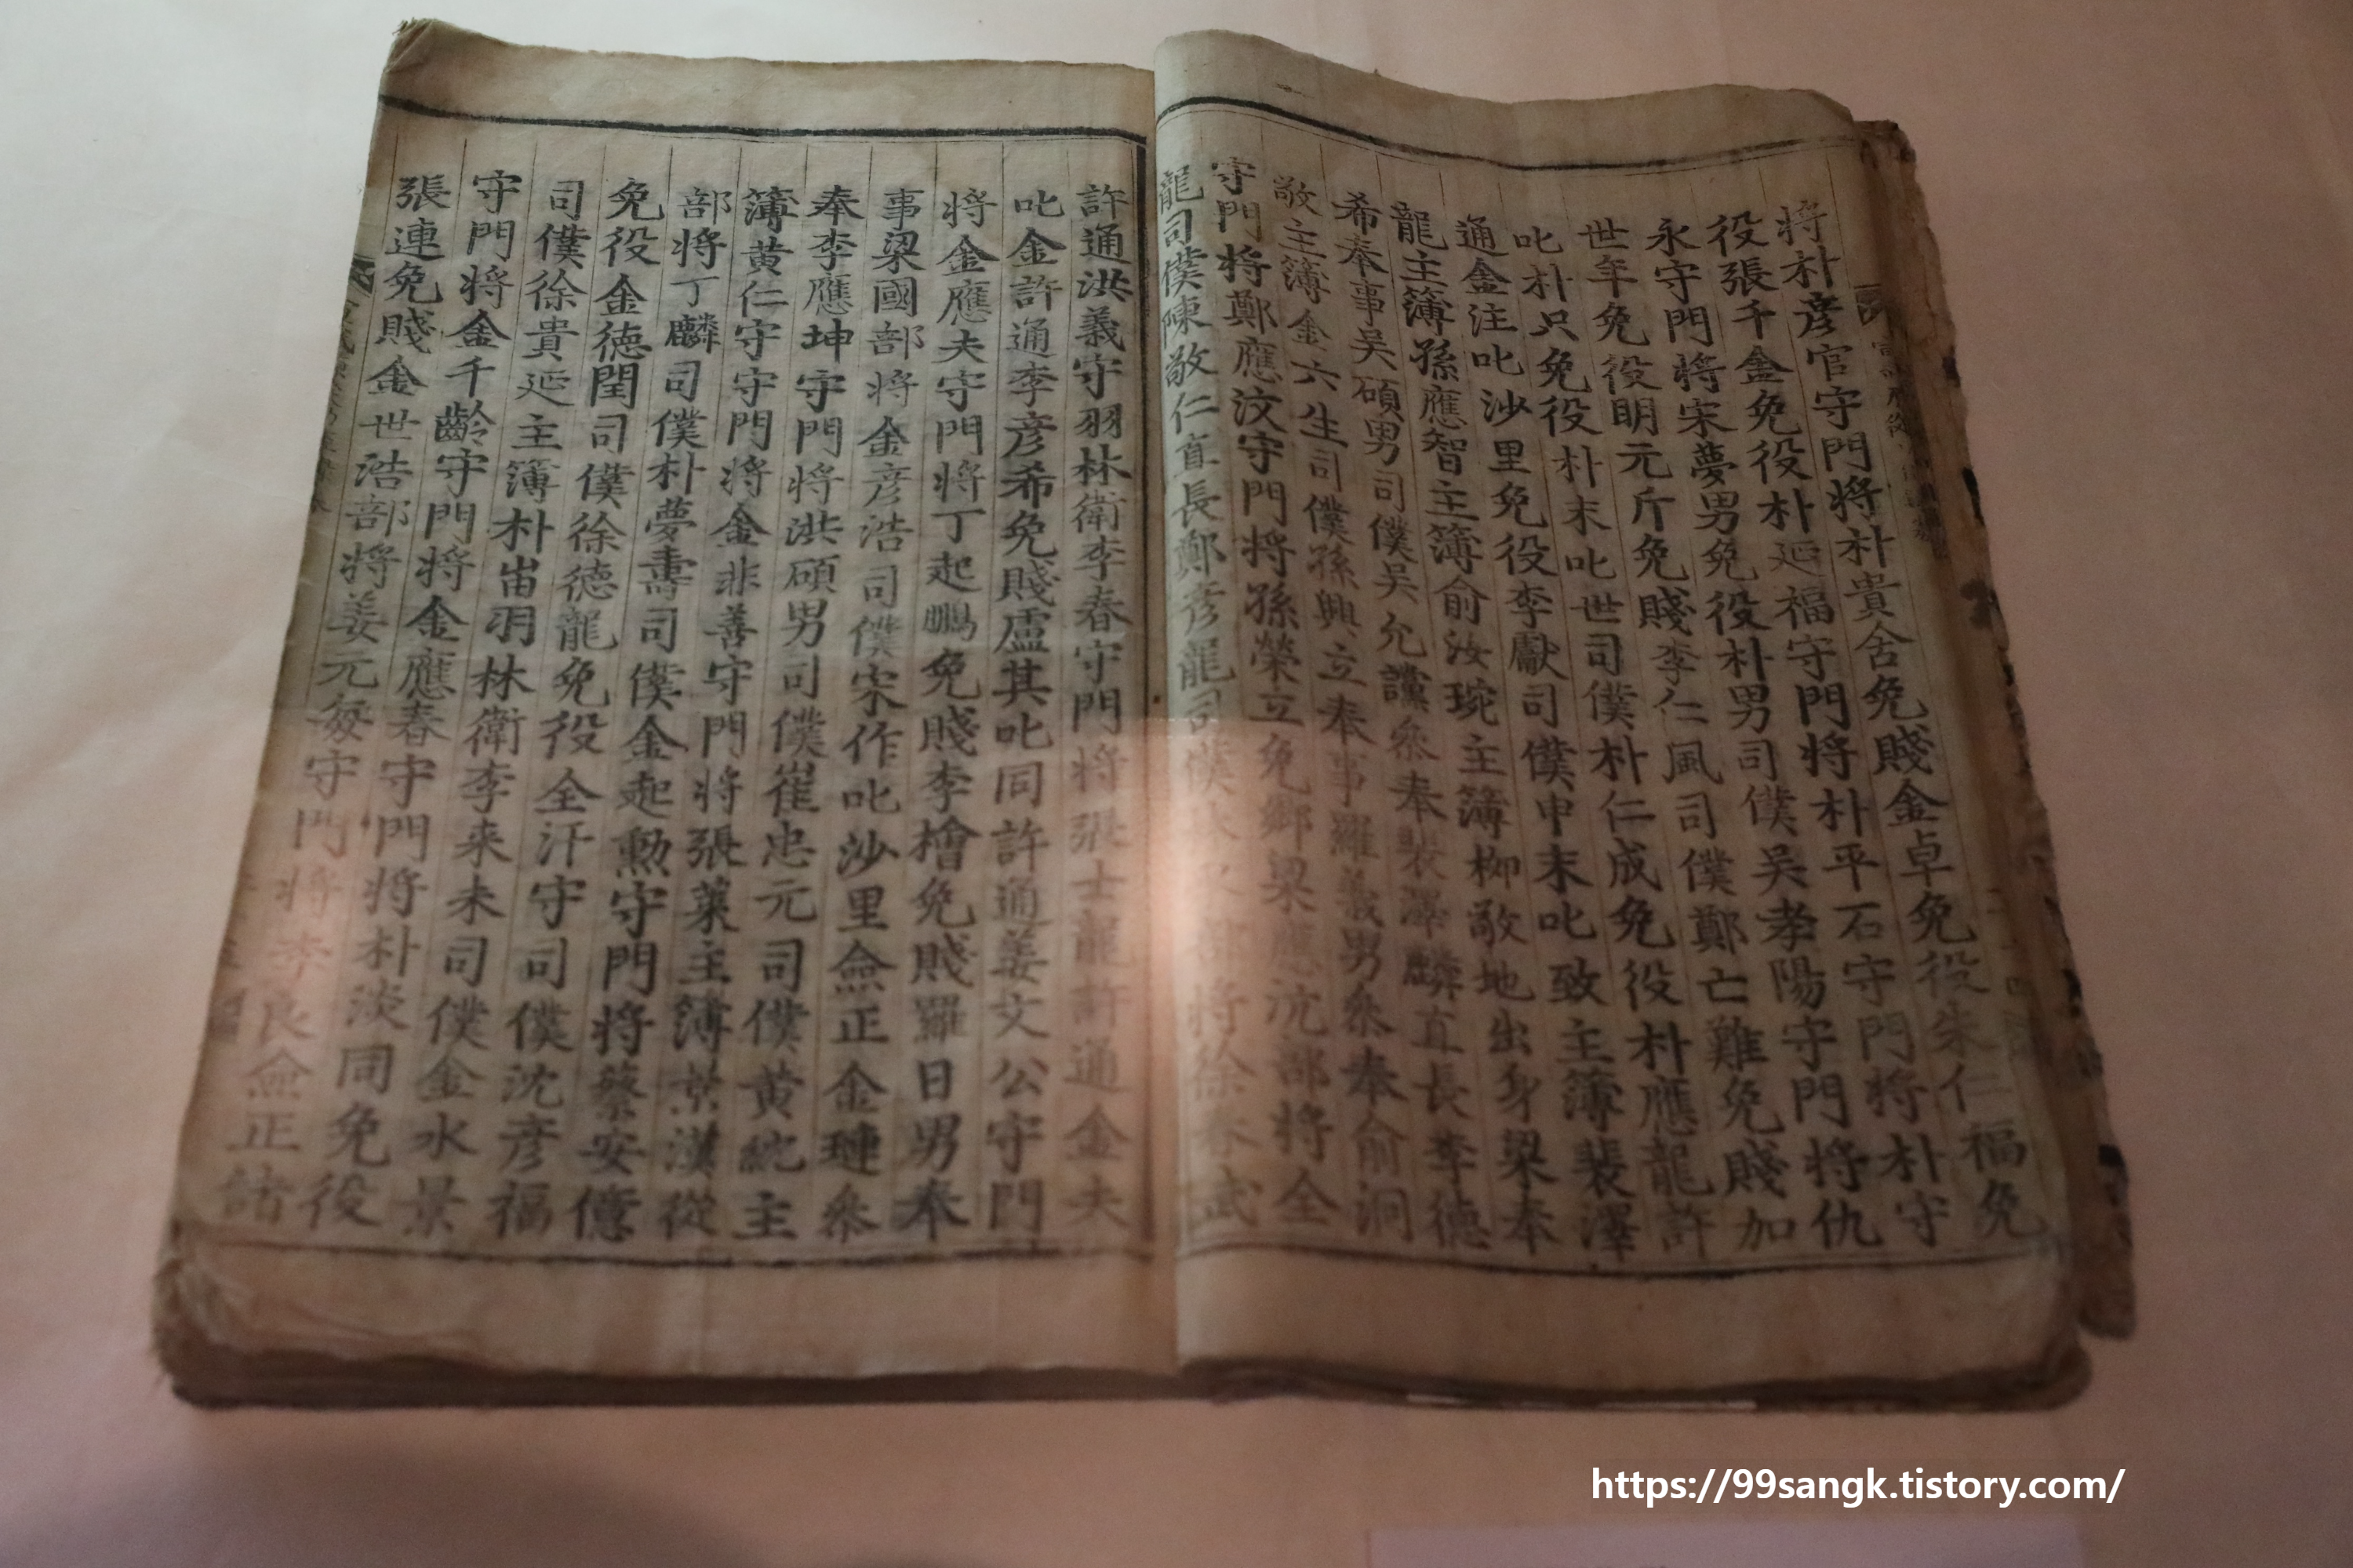 將朴彦官守門將朴貴舍免賤金卓免役朱仁福免
役張千金免役朴延福守門將朴平石守門將朴守
永守門將宋夢男免役朴男司僕吳孝陽守門將仇
世年免役明元斤免賤李仁風司僕鄭亡難免賤加
叱朴只免役朴末叱世司僕朴仁成免役朴應龍許
通金注叱沙里免役李獻司僕申末叱致主簿裴澤
龍主簿孫應智主簿俞汝琬主簿柳敬地出身梁奉
希奉事吳碩男司僕吳允讜叅奉裴澤麟直長李德
敬主簿金六生司僕孫興立奉事羅義男叅奉俞泂
守門將鄭應汶守門將孫榮立免鄉梁應沈部將全
龍司僕陳敬仁直長鄭彦龍司僕部將徐春武
許通洪義守羽林衛李春守門將張士龍許通金夫
叱金許通李彦希免賤盧其叱同許通姜文公守門
將金應夫守門將丁起鵬免賤李檜免賤羅日男奉
事梁國部將金彦浩司僕宋作叱沙里僉正金璉叅
奉李應坤守門將洪碩男司僕崔忠元司僕黃統主
簿黃仁守守門將金非善守門將張萊主簿景漢從
部將丁麟司僕朴夢壽司僕金起勲守門將蔡安億
免役金德閏司僕徐德龍免役全汗守司僕沈彦福
司僕徐貴延主簿朴畄羽林衛李来未司僕金水景
守門將金千齡守門將金應春守門將朴淡同免役
張連免賤金世浩部將姜元每守門將李良僉正
https://99sangk.tistory.com/